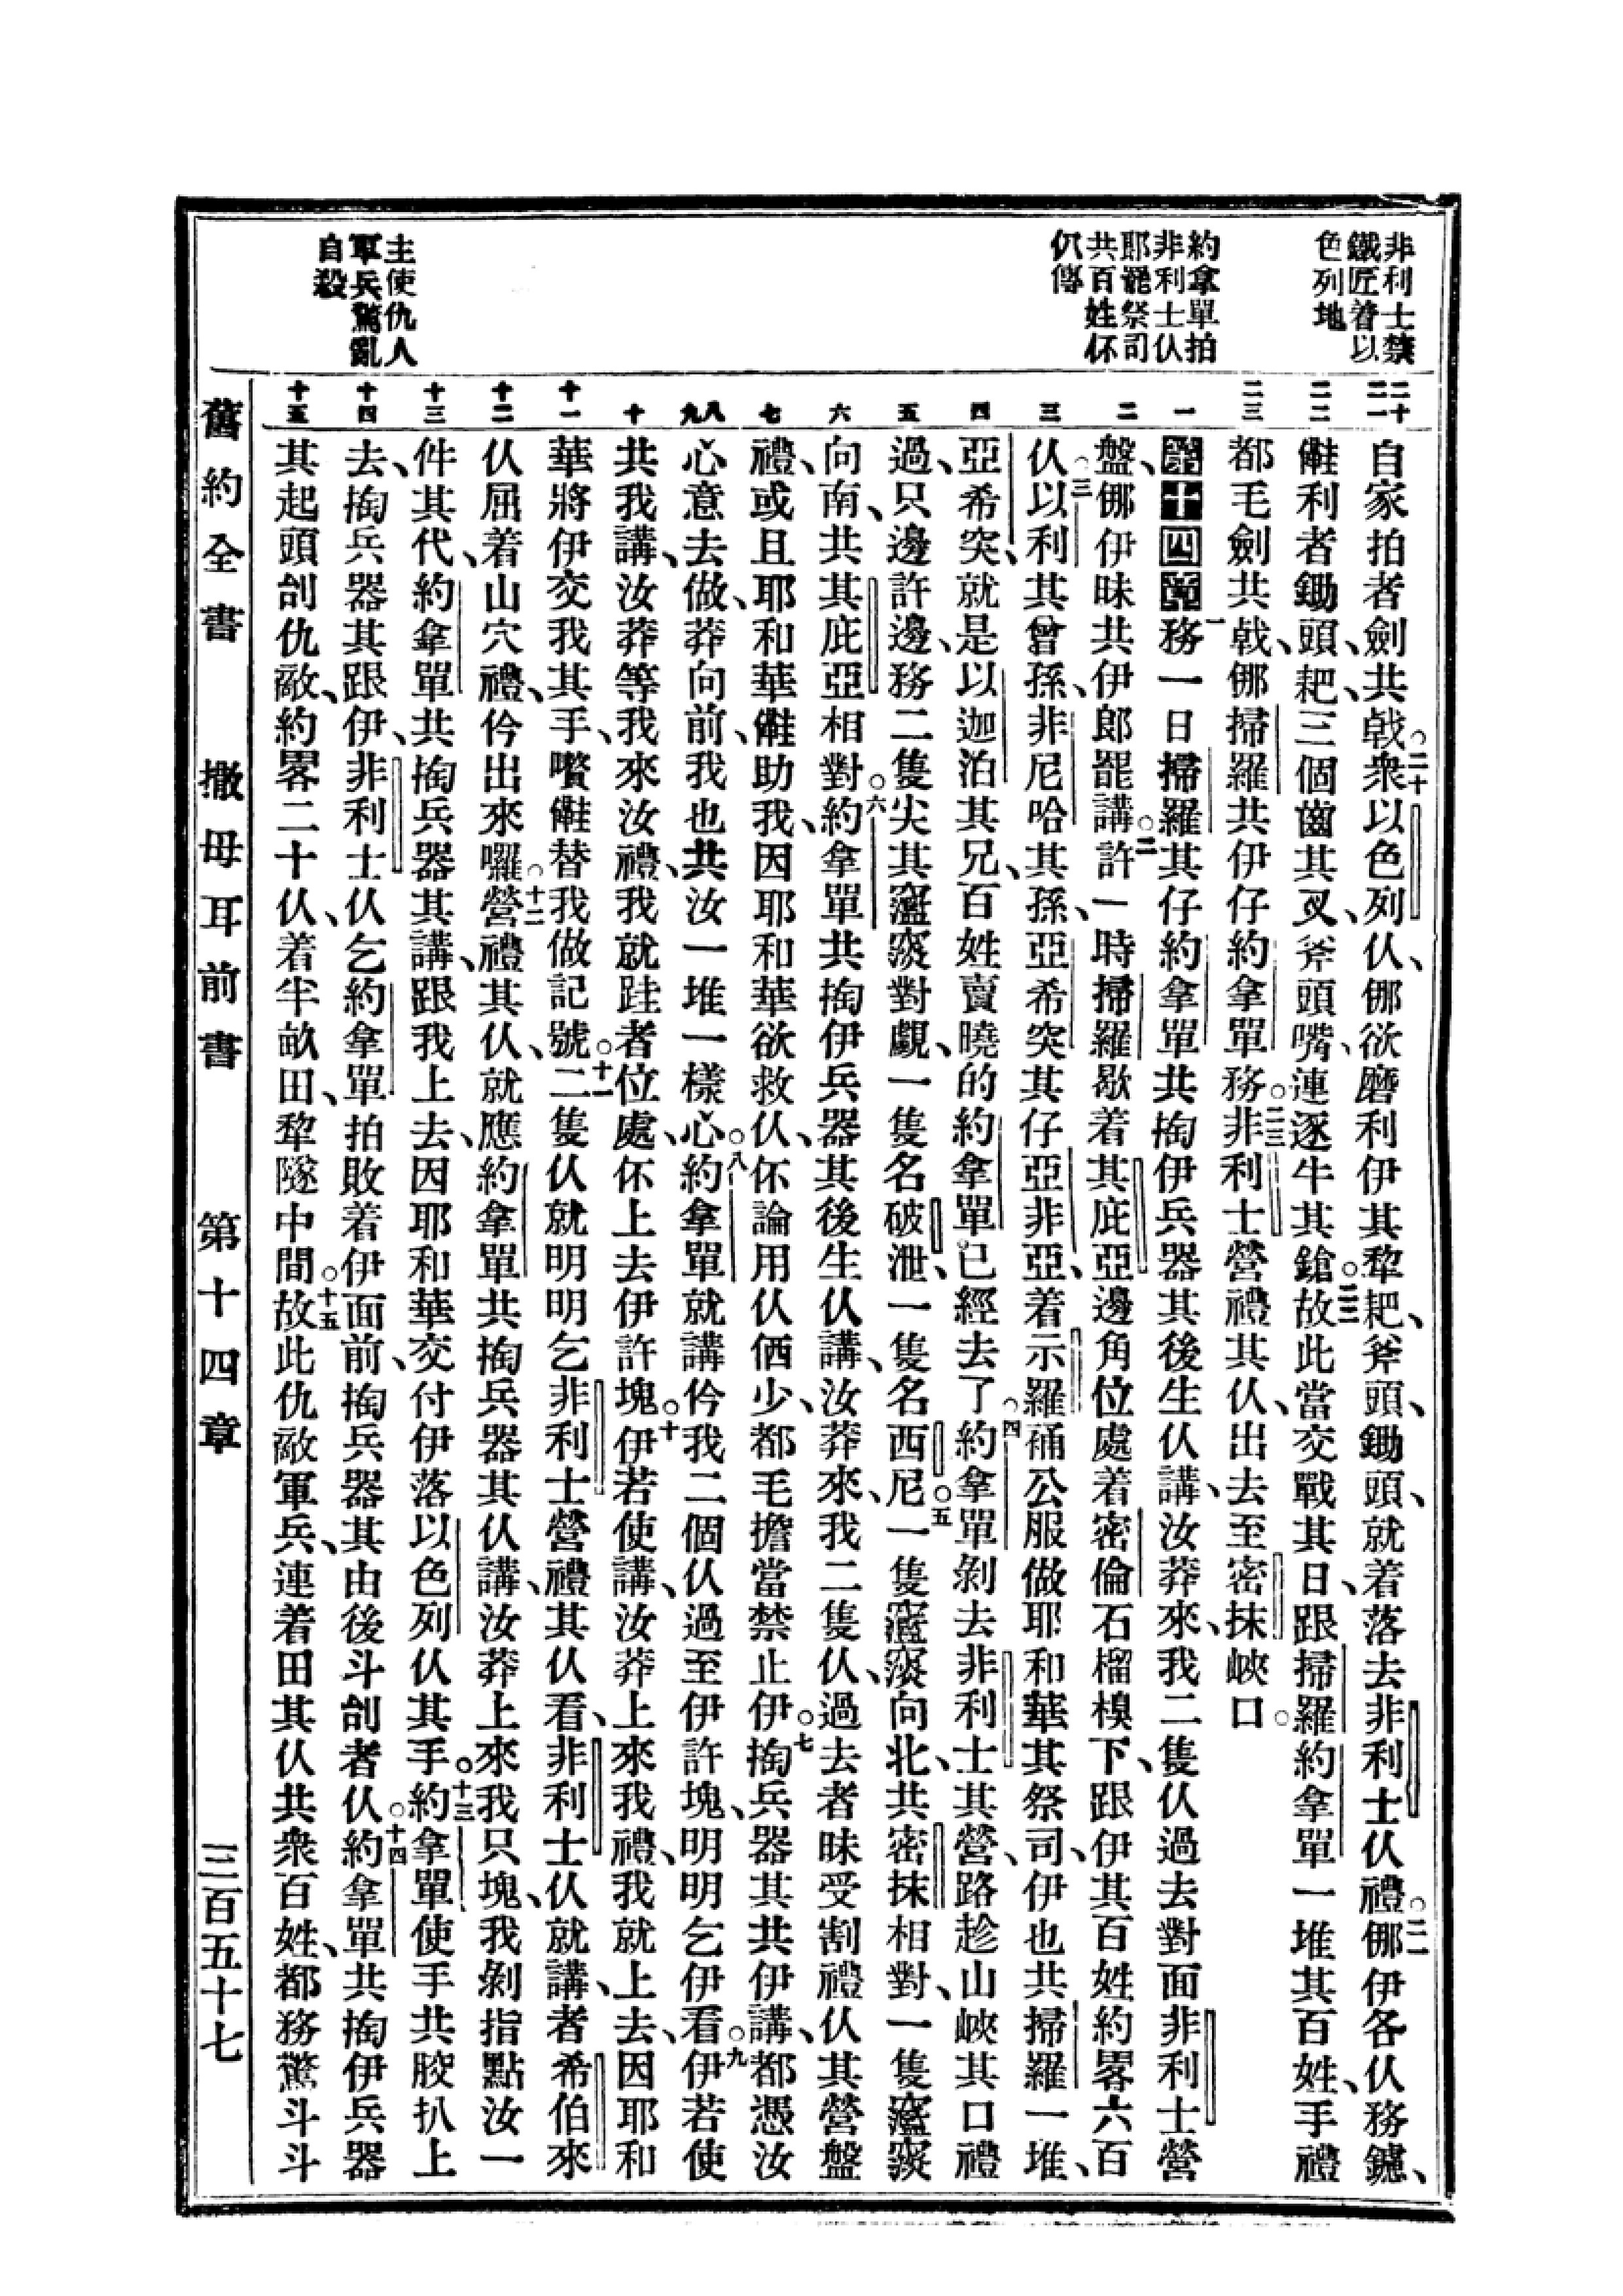 非利士禁
鐵匠着以
色列地
約拿單拍
非利士仫
耶罷祭司
共百姓伓
仈傳
主使仇人
軍兵驚亂
自殺
二十
二一
二二
二三
一
二
三
四
五
六
七
八
九
十
十一
十二
十三
十四
十五
自家拍者劍共戟○二十衆以色列仫、倻欲磨利伊其犂耙、斧頭、鋤頭、就着落去非利士仫禮○二一倻伊各仫務鑢、
𠆧利者鋤頭、耙、三個齒其叉、斧頭嘴、連逐牛其鎗○二二故此當交戰其日、跟掃羅約拿單一堆其百姓、手禮
都毛劍共戟、倻掃羅共伊仔約拿單務○二三非利士營禮其仫、出去至密抹峽口○
第十四章一務一日掃羅其仔約拿單共掏伊兵器其後生仫講、汝莽來、我二隻仫過去對面非利士營
盤、倻伊昧共伊郎罷講○二許一時掃羅歇着其庇亞邊角位處着密倫石榴模下、跟伊其百姓約畧六百
仫○三以利其曾孫、非尼哈其孫、亞希突其仔亞非亞、着示羅補公服做耶和華其祭司、伊也共掃羅一堆、
亞希突、就是以迦泊其兄、百姓賣曉的約拿單已經去了○四約拿單剝去非利士其營、路趁山峽其口禮
過、只邊許邊、務二隻尖其𥧌𥧌對覷、一隻名破泄、一隻名西尼○五一隻𥧌𥧌向北、共密抹相對、一隻𥧌𥧌
向南、共其庇亞相對○六約拿單共掏伊兵器其後生仫講、汝莽來、我二隻仫、過去者昧受割禮仫其營盤
禮、或且耶和華𠆧助我、因耶和華欲救仫、伓論用仫価少、都毛擔當禁止伊○七掏兵器其共伊講、都憑汝
心意去做、莽向前、我也共汝一堆一樣心○八約拿單就講、仱我二個仫過至伊許塊、明明乞伊看○九伊若使
共我講、汝莽等、我來汝禮、我就跬者位處、伓上去伊許塊○十伊若使講、汝莽上來我禮、我就上去、因耶和
華將伊交我其手、嚽𠆧替我做記號○十一二隻仫就明明乞非利士營禮其仫看、非利士仫就講、者希伯來
仫屈着山穴禮、仱出來囉○十二營禮其仫、就應約拿單共掏兵器其仫講、汝莽上來我只塊、我剝指點汝一
件其代、約拿單共掏兵器其講、跟我上去、因耶和華交付伊落以色列仫其手○十三約拿單使手共骹扒上
去、掏兵器其跟伊、非利士仫乞約拿單拍敗着伊面前、掏兵器其由後斗刣者仫○十四約拿單共掏伊兵器
其起頭刣仇敵、約畧二十仫、着半畝田、犂隧中間○十五故此仇敵軍兵、連着田其仫共衆百姓、都務驚斗斗
舊約全書
撒母耳前書
第十四章
三百五十七